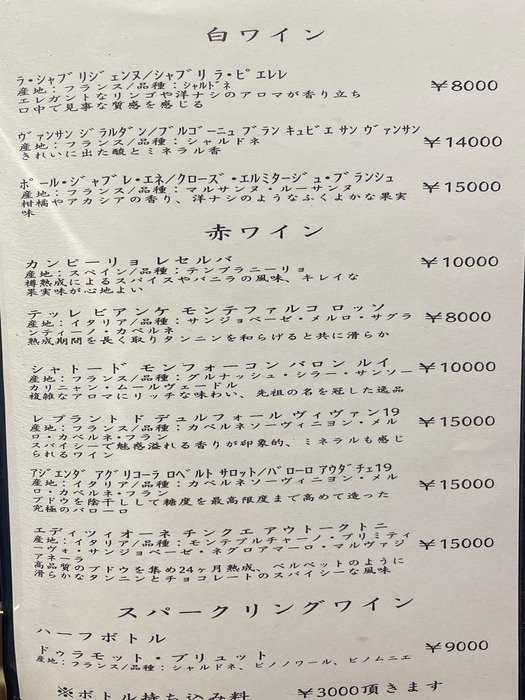 白ワイン
ラ・シャブリジェンヌ/シャブリ ラ・ピエレレ
¥8000
産地:フランス/品種:シャルドネ
エレガントなリンゴや洋ナシのアロマが香り立ち
口中で見事な質感を感じる
ヴァンサン ジラルダン/ブルゴーニュ ブラン キュビエ サン ヴァンサン
¥14000
産地:フランス/品種:シャルドネ
きれいに出た酸とミネラル香
ポール・ジャブレ・エネ/クローズ・エルミタージュ・ブランシュ
¥15000
産地:フランス/品種:マルサンヌ・ルーサンヌ
柑橘やアカシアの香り、洋ナシのようなふくよかな果実
味
赤ワイン
カンピーリョ レセルバ
¥10000
産地:スペイン/品種:テンプラニーリョ
樽熟成によるスパイスやバニラの風味、キレイな
果実味が心地よい
テッレ ビアンケ モンテファルコ ロッソ
¥8000
産地:イタリア/品種:サンジョベーゼ・メルロ・サグラ
ンティーノ・カベルネ
熟成期間を長く取りタンニンを和らげると共に滑らか
シャトード モンフォーコン バロン ルイ
¥10000
産地:フランス/品種:グルナッシュ・シラー・サンソー
カリニャン・ムールヴェードル
複雑なアロマにリッチな味わい、先祖の名を冠した逸品
レ プラント ド デュルフォール ヴィヴァン19
¥15000
産地:フランス/品種:カベルネソーヴィニヨン・メル
ロ・カベルネ・フラン
スパイシーで魅惑溢れる香りが印象的、ミネラルも感じ
られるワイン
アジエンダ アグリコーラ ロベルト サロット/バローロ アウダチェ19
¥15000
産地:イタリア/品種:カベルネソーヴィニヨン・メル
ロ・カベルネ・フラン
ブドウを陰干しして糖度を最高限度まで高めて造った
究極のバローロ
エディツィオーネ チンクエ アウトークトニ
¥15000
産地:イタリア/品種:モンテプルチャーノ・プリミティ
ーヴォ・サンジョベーゼ・ネグロアマーロ・マルヴァジ
アネーラ
高品質のブドウを集め24ヶ月熟成、ベルベットのように
滑らかなタンニンとチョコレートのスパイシーな風味
スパークリングワイン
ハーフボトル
ドゥラモット・ブリュット
¥9000
産地:フランス/品種:シャルドネ、ピノノワール、ピノムニエ
※ボトル持ち込み料 ¥3000頂きます